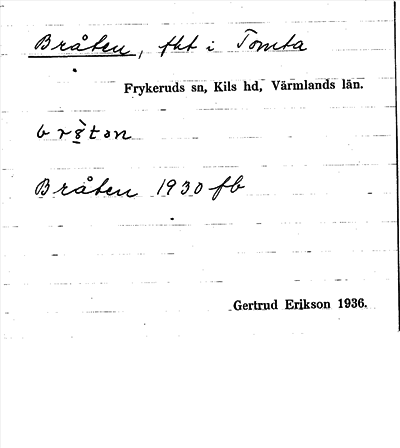 Bråten, fht i Tomta
Frykeruds sn, Kils hd, Värmlands län.
Bråten 1930 fb
Gertrud Erikson 1936.